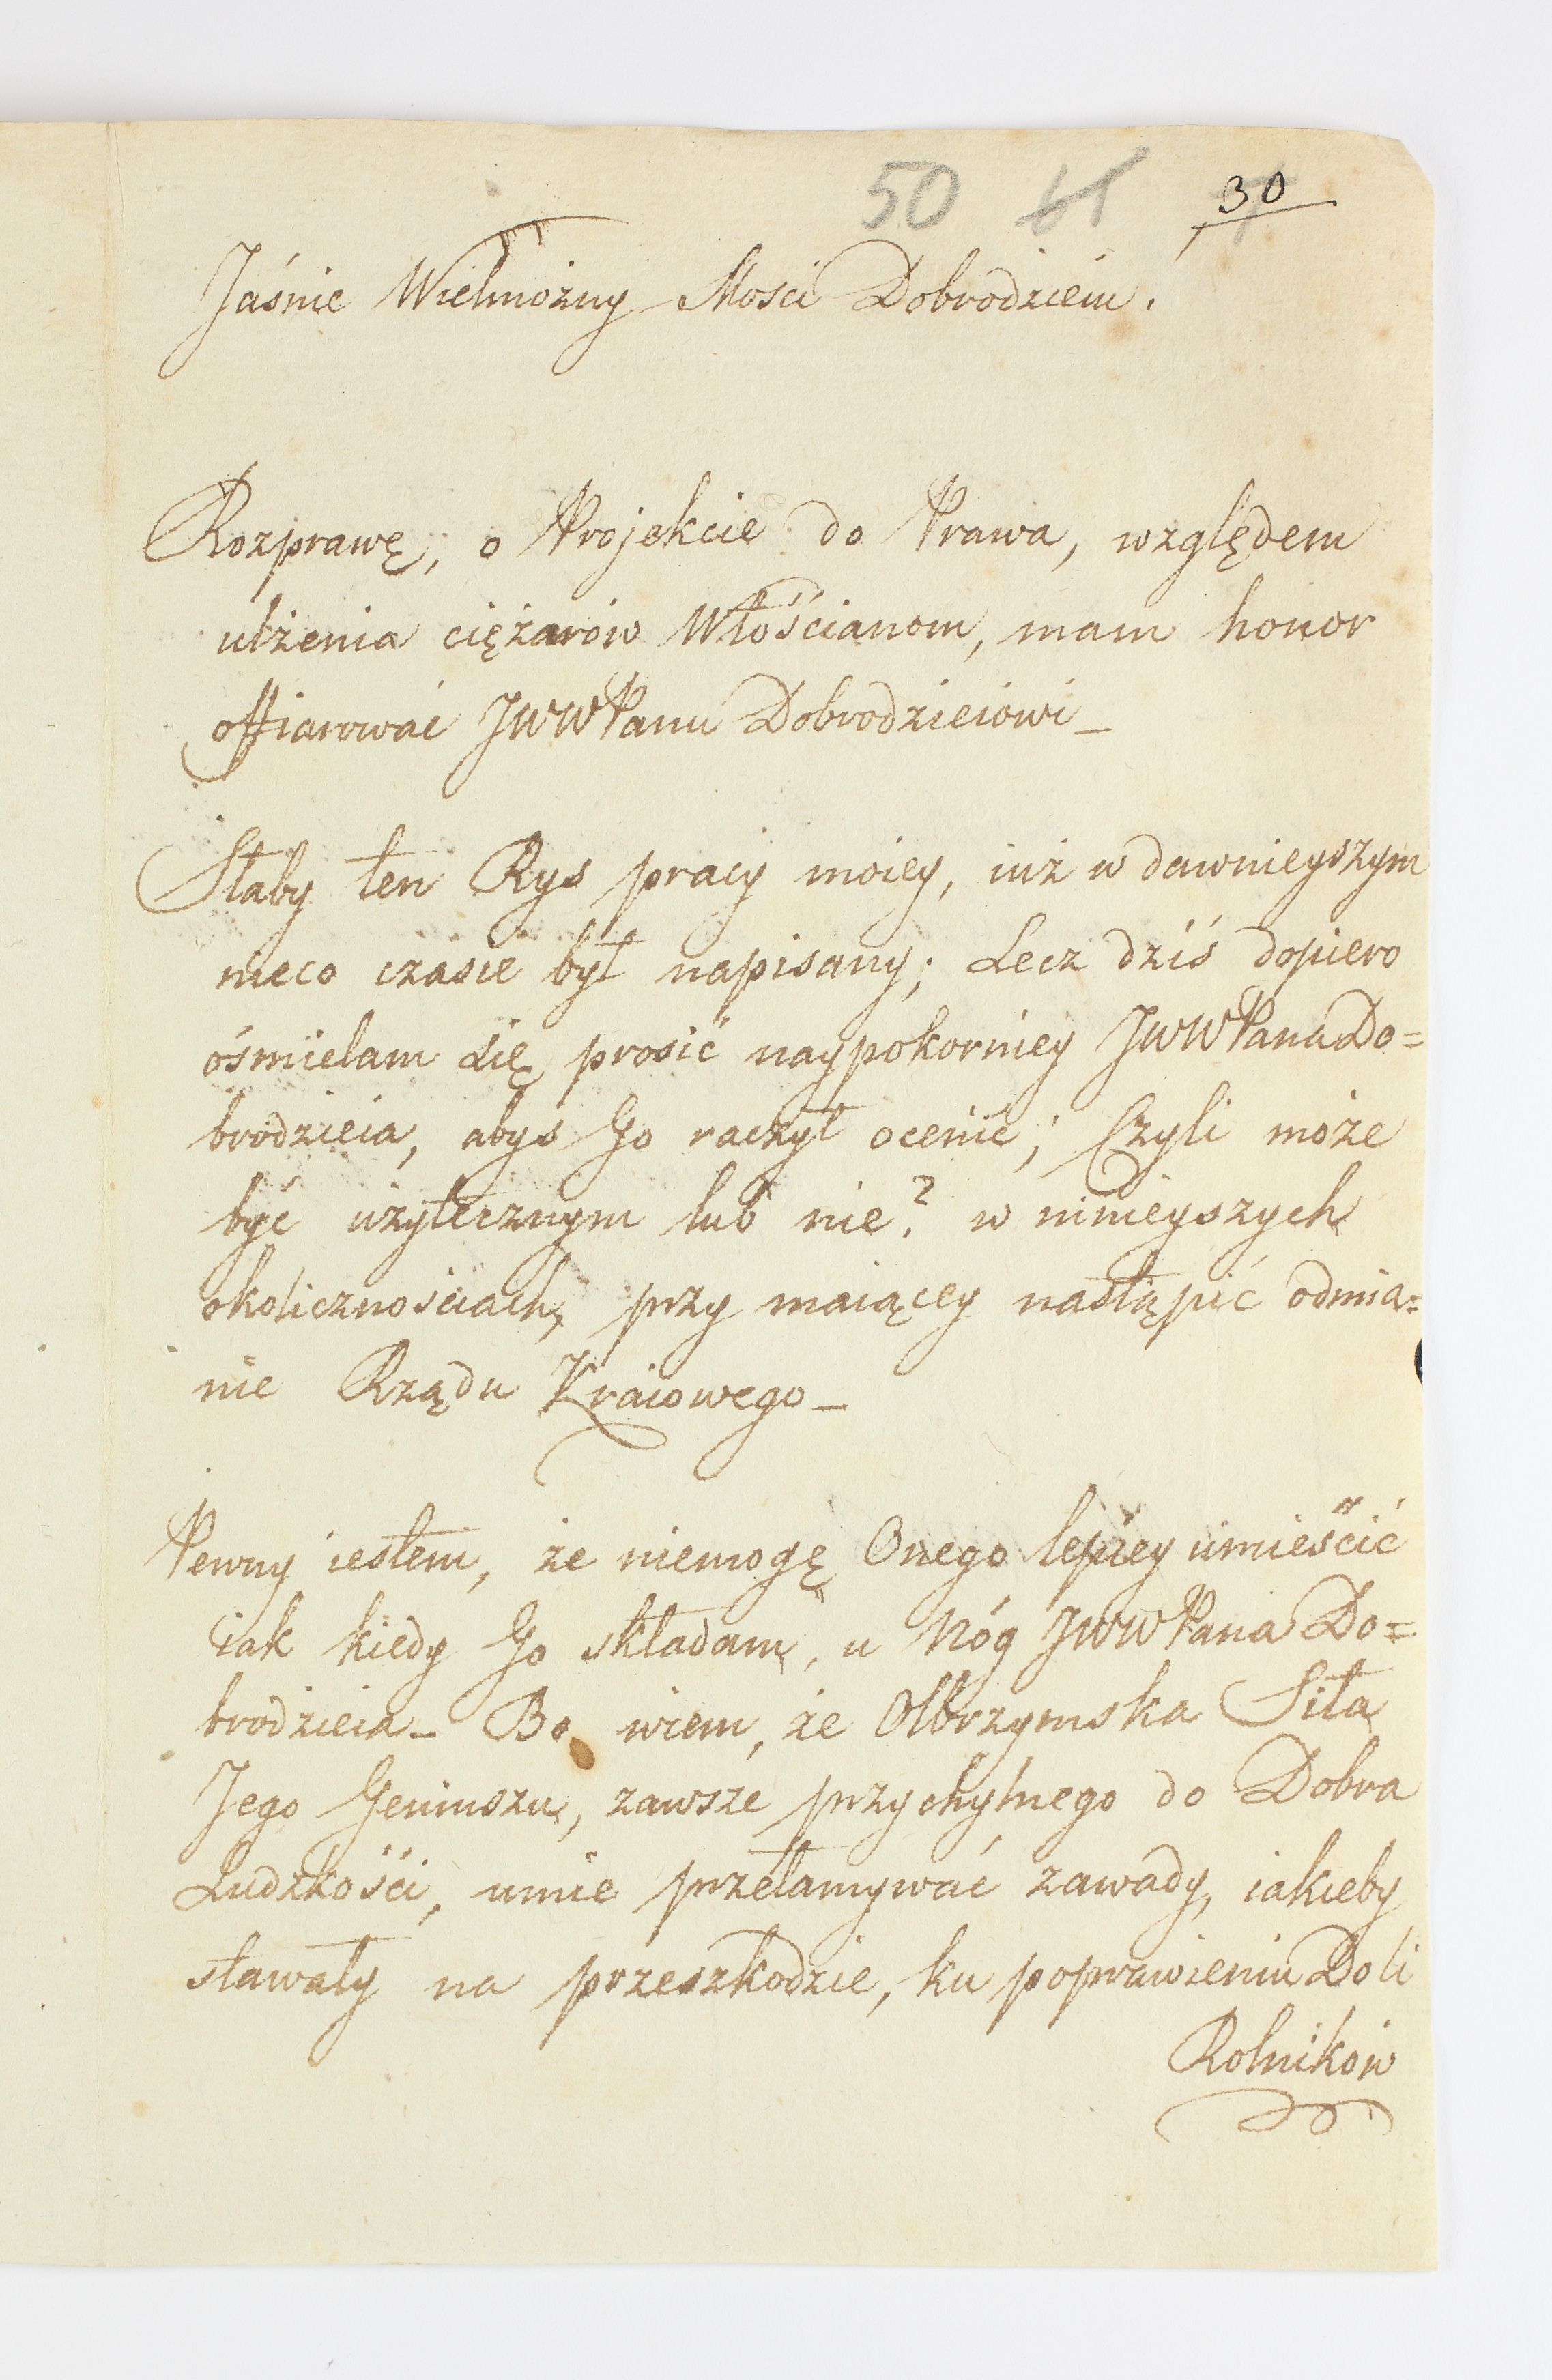 50 61 30
Jaśnie Wielmożny Mości Dobrodzieiu.
Rozprawę, o Projekcie do Prawa, względem
ulżenia ciężarów Włościanom, mam honor
offiarować JWWPanu Dobrodzieiowi_
Słaby ten Rys pracy moiey, iuż w dawnieyszym
nieco czasie był napisany; Lecz dziś dopiero
ośmielam się prosić naypokorniey JWWPana Do=
brodzieia, abyś Go raczył ocenić; Czyli może
być użytecznym lub nie? w ninieyszych
okolicznościach, przy maiącey nastąpić odmia=
nie Rządu Kraiowego_
Pewny iestem, że niemogę Onego lepiey umieścić
iak kiedy Go składam, u Nóg JWWPana Do=
brodzieia_ Bo wiem, że Olbrzymska Siła
Jego Geniuszu, zawsze przychylnego do Dobra
Ludzkości, umie przełamywać zawady, iakieby
stawały na przeszkodzie, ku poprawieniu Doli
Rolników